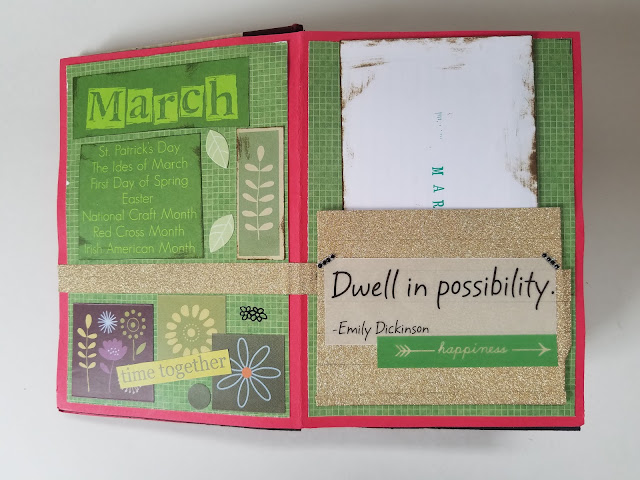 March
St. Patrick's Day
The Ides of March
First Day of Spring
Easter
National Craft Month
Red Cross Month
Irish-American Month
time together
MAR
Dwell in possibility.
-Emily Dickinson
happiness